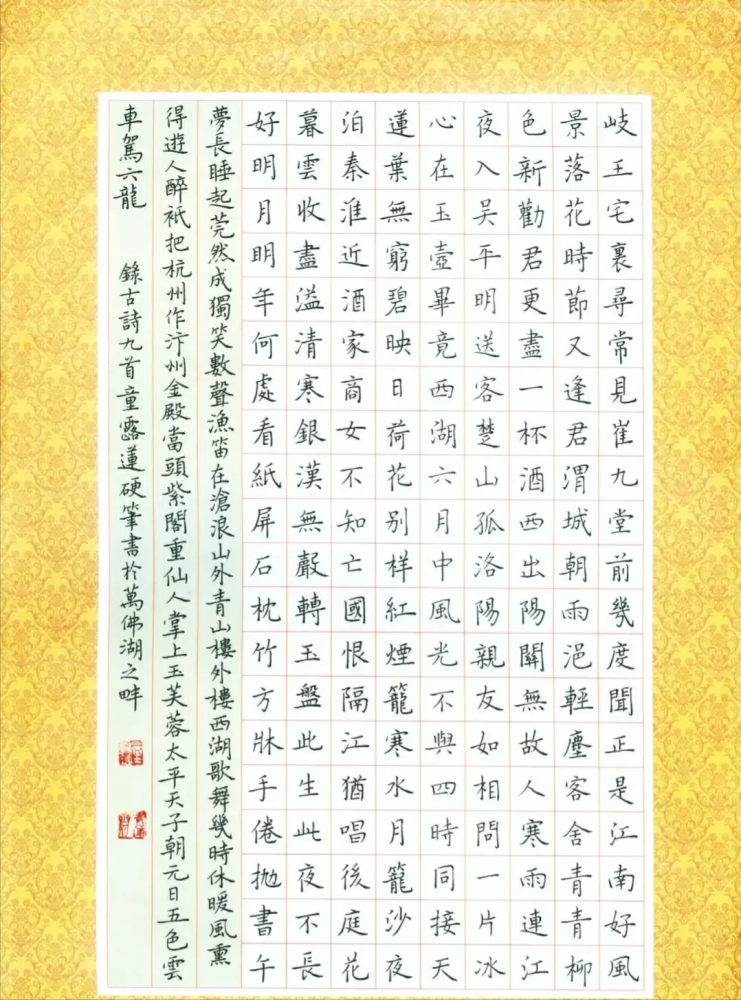 岐王宅裏尋常見崔九堂前幾度聞正是江南好風
景落花時節又逢君渭城朝雨浥輕塵客舍青青柳
色新勸君更盡一杯酒西出陽關無故人寒雨連江
夜入吳平明送客楚山孤洛陽親友如相問一片冰
心在玉壺畢竟西湖六月中風光不與四時同接天
蓮葉無窮碧映日荷花别樣紅煙籠寒水月籠沙夜
泊秦淮近酒家商女不知亡國恨隔江猶唱後庭花
暮雲收盡溢清寒銀漢無聲轉玉盤此生此夜不長
好明月明年何處看紙屏石枕竹方牀手倦拋書午
夢長睡起莞然成獨笑數聲漁笛在滄浪山外青山樓外樓西湖歌舞幾時休暖風熏
得遊人醉祇把杭州作汴州金殿當頭紫閣重仙人掌上玉芙蓉太平天子朝元日五色雲
車駕六龍 錄古詩九首童露蓮硬筆書於萬佛湖之畔